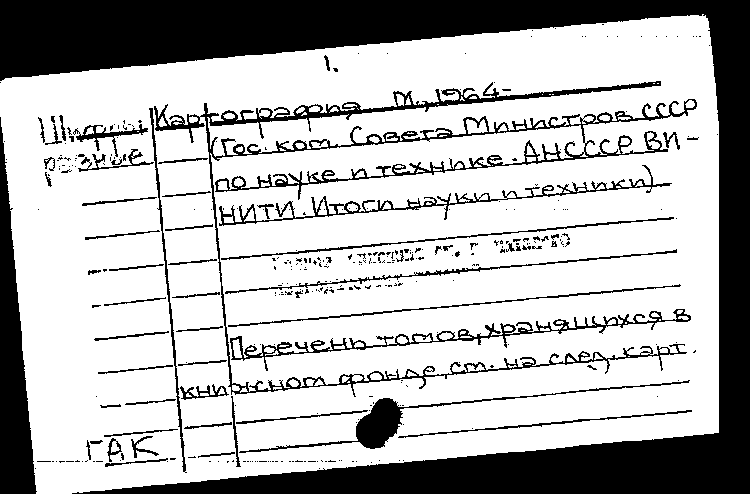 1.
Шифры Картография М., 1964-
разные (Гос. ком. Совета Министров СССР
по науке и технике. АН СССР. ВИ-
НИТИ. Итоги науки и техники)
Перечень томов, хранящихся в
книжном фонде, см. на след. карт.
ГАК